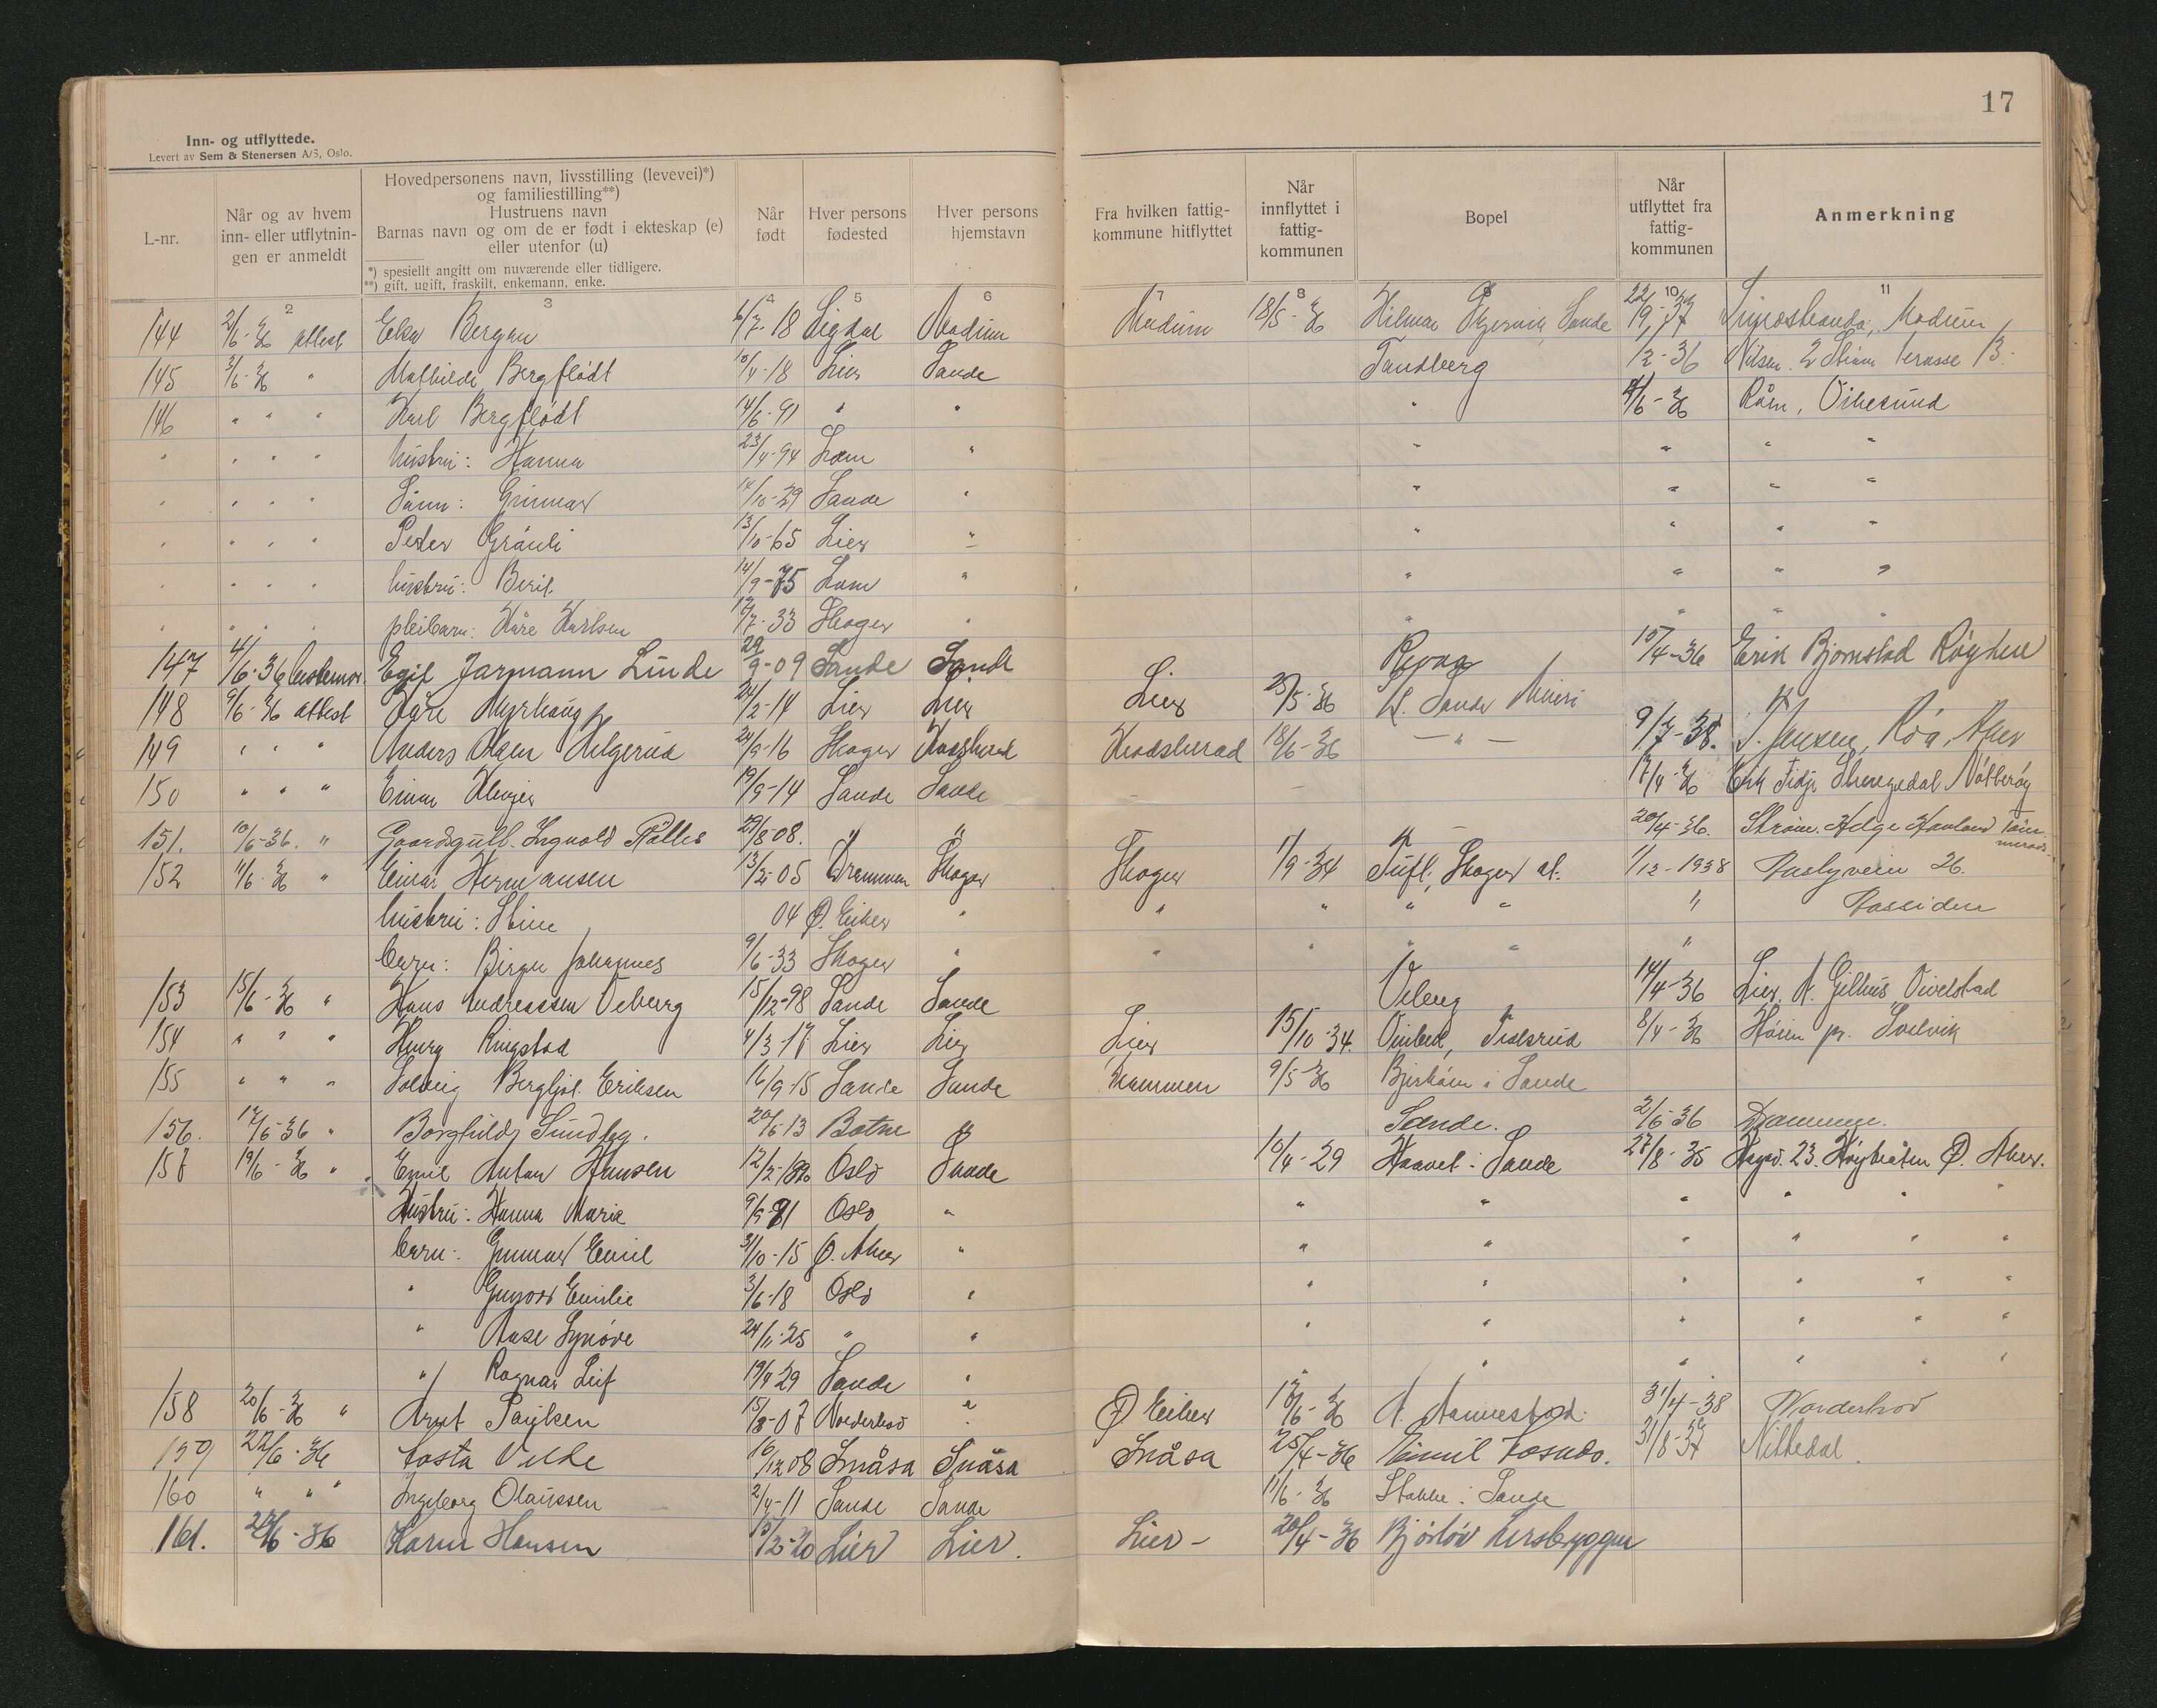 17
Inn- og utflyttede.
Levert av Sem & Stenersen A/S, Oslo.
L-nr.
Når og av hvem inn- eller utflytnin-gen er anmeldt
Hovedpersonens navn, livsstilling (levevei)*) og familiestilling**) Hustruens navn Barnas navn og om de er født i ekteskap (e) eller utenfor (u)
*) spesiellt angitt om nuværende eller tidligere.
**) gift, ugift, fraskilt, enkemann, enke.
Når født
Hver persons fødested
Hver persons hjemstavn
Fra hvilken fattig-kommune hitflyttet
Når innflyttet i fattig-kommunen
Bopel
Når utflyttet fra fattig-kommunen
Anmerkning
2 3 4 5 6 7 8 10 11
144 2/6-36 attest Elsa Bergan 6/7-18 Sigdal Modum Modum 18/5-36 Hilmar Sande Modum
145 2/6-36 " Mathilde Bergflødt 10/4-18 Lier Sande Sandberg 12-36 terasse 13.
146 " " " Karl Bergflødt 14/6-91 " " " 4/6-36 Råen, Vikesund
" " " " hustru: Hanna 23/4-94 Lom " " " " "
" " " " Sønn: Gunnar 14/10-29 Sande " " " " "
" " " " Peder Grønli 13/10-65 Lier " " " " "
" " " " hustru: Berit 14/9-75 Lom " " " " "
" " " " pleibarn: Kåre Karlsen 12/7-33 Skoger " " " " "
147 4/6-36 Egil Jarmann Linde 29/9-09 Sande Sande Revaa 15/4-36 Erik Bjørnstad Røyken
148 9/6-36 attest Kåre Myrhaug 24/2-14 Lier Lier Lier 25/5-36 Sande Meieri "
149 " " " Anders Olsen Helgerud 24/9-16 Skoger Krødsherad Krødsherad 18/6-36 — " — 9/7-38. J. Jensen, Røa, Aker
150 " " " Einar Klever 19/9-14 Sande Sande 17/4-36 Nøtterøy
151. 10/6-36. " Gaardsgutt. Ingvald Pålles 29/8 08. " " " 20/4-36. Strøm. Helge Havland
152 11/6-36 " Einar Hermansen 13/2-05 Drammen Skoger Skoger 1/9-34 Tuft, Skoger al. 1/12-1938 26.
hustru: Stine 04 Ø. Eiker " " " " " "
barn: Birger Johannes 9/6-33 Skoger " " " " " "
153 15/6-36 " Hans Andreassen Veberg 15/12-98 Sande Sande Veberg 14/4-36 Lier, A. Gilhus, Vivelstad
154 " " " Ringstad 4/3-17 Lier Lier Lier 15/10-34. 8/4-36 pr. Svelvik
155 " " " Solveig Bergljot Eriksen 16/9-15 Sande Sande Drammen 9/5-36 i Sande
156. 17/6-36 " Borghild Sundby. 20/5-13 Botne " Sande. 2/6-36 Drammen.
157 19/6-36 " Emil Anton Hansen 12/2- Oslo Sande 10/4-29 Haavet i Sande 27/8-35 23. Høybråten Ø. Aker.
Hustru: Hanna Marie 9/9-81 Oslo " " " " " " "
barn: Gunnar Emil 3/10-15 Ø. Aker " " " " " " "
" Gunvor Emilie 3/6-18 Oslo " " " " " " "
" Aase Synøve 24/11-25 " " " " " " " "
" Ragnar Leif 19/4 29 Sande " " " " " " "
158 20/6-36 " Arnt Paulsen 15/8-07 Norderhov " Ø Eiker 18/6-36 31/4-38 Norderhov
159 22/6-36 Velde 16/12 08 Snåsa Snåsa Snåsa 25/4-36 31/8-37 Nittedal
160 " " " Ingeborg Olaussen 2/4-11 Sande Sande 11/6-36 i Sande
161. 22/6-36 Karin Hansen 15/12-20 Lier Lier. Lier - 20/4-36